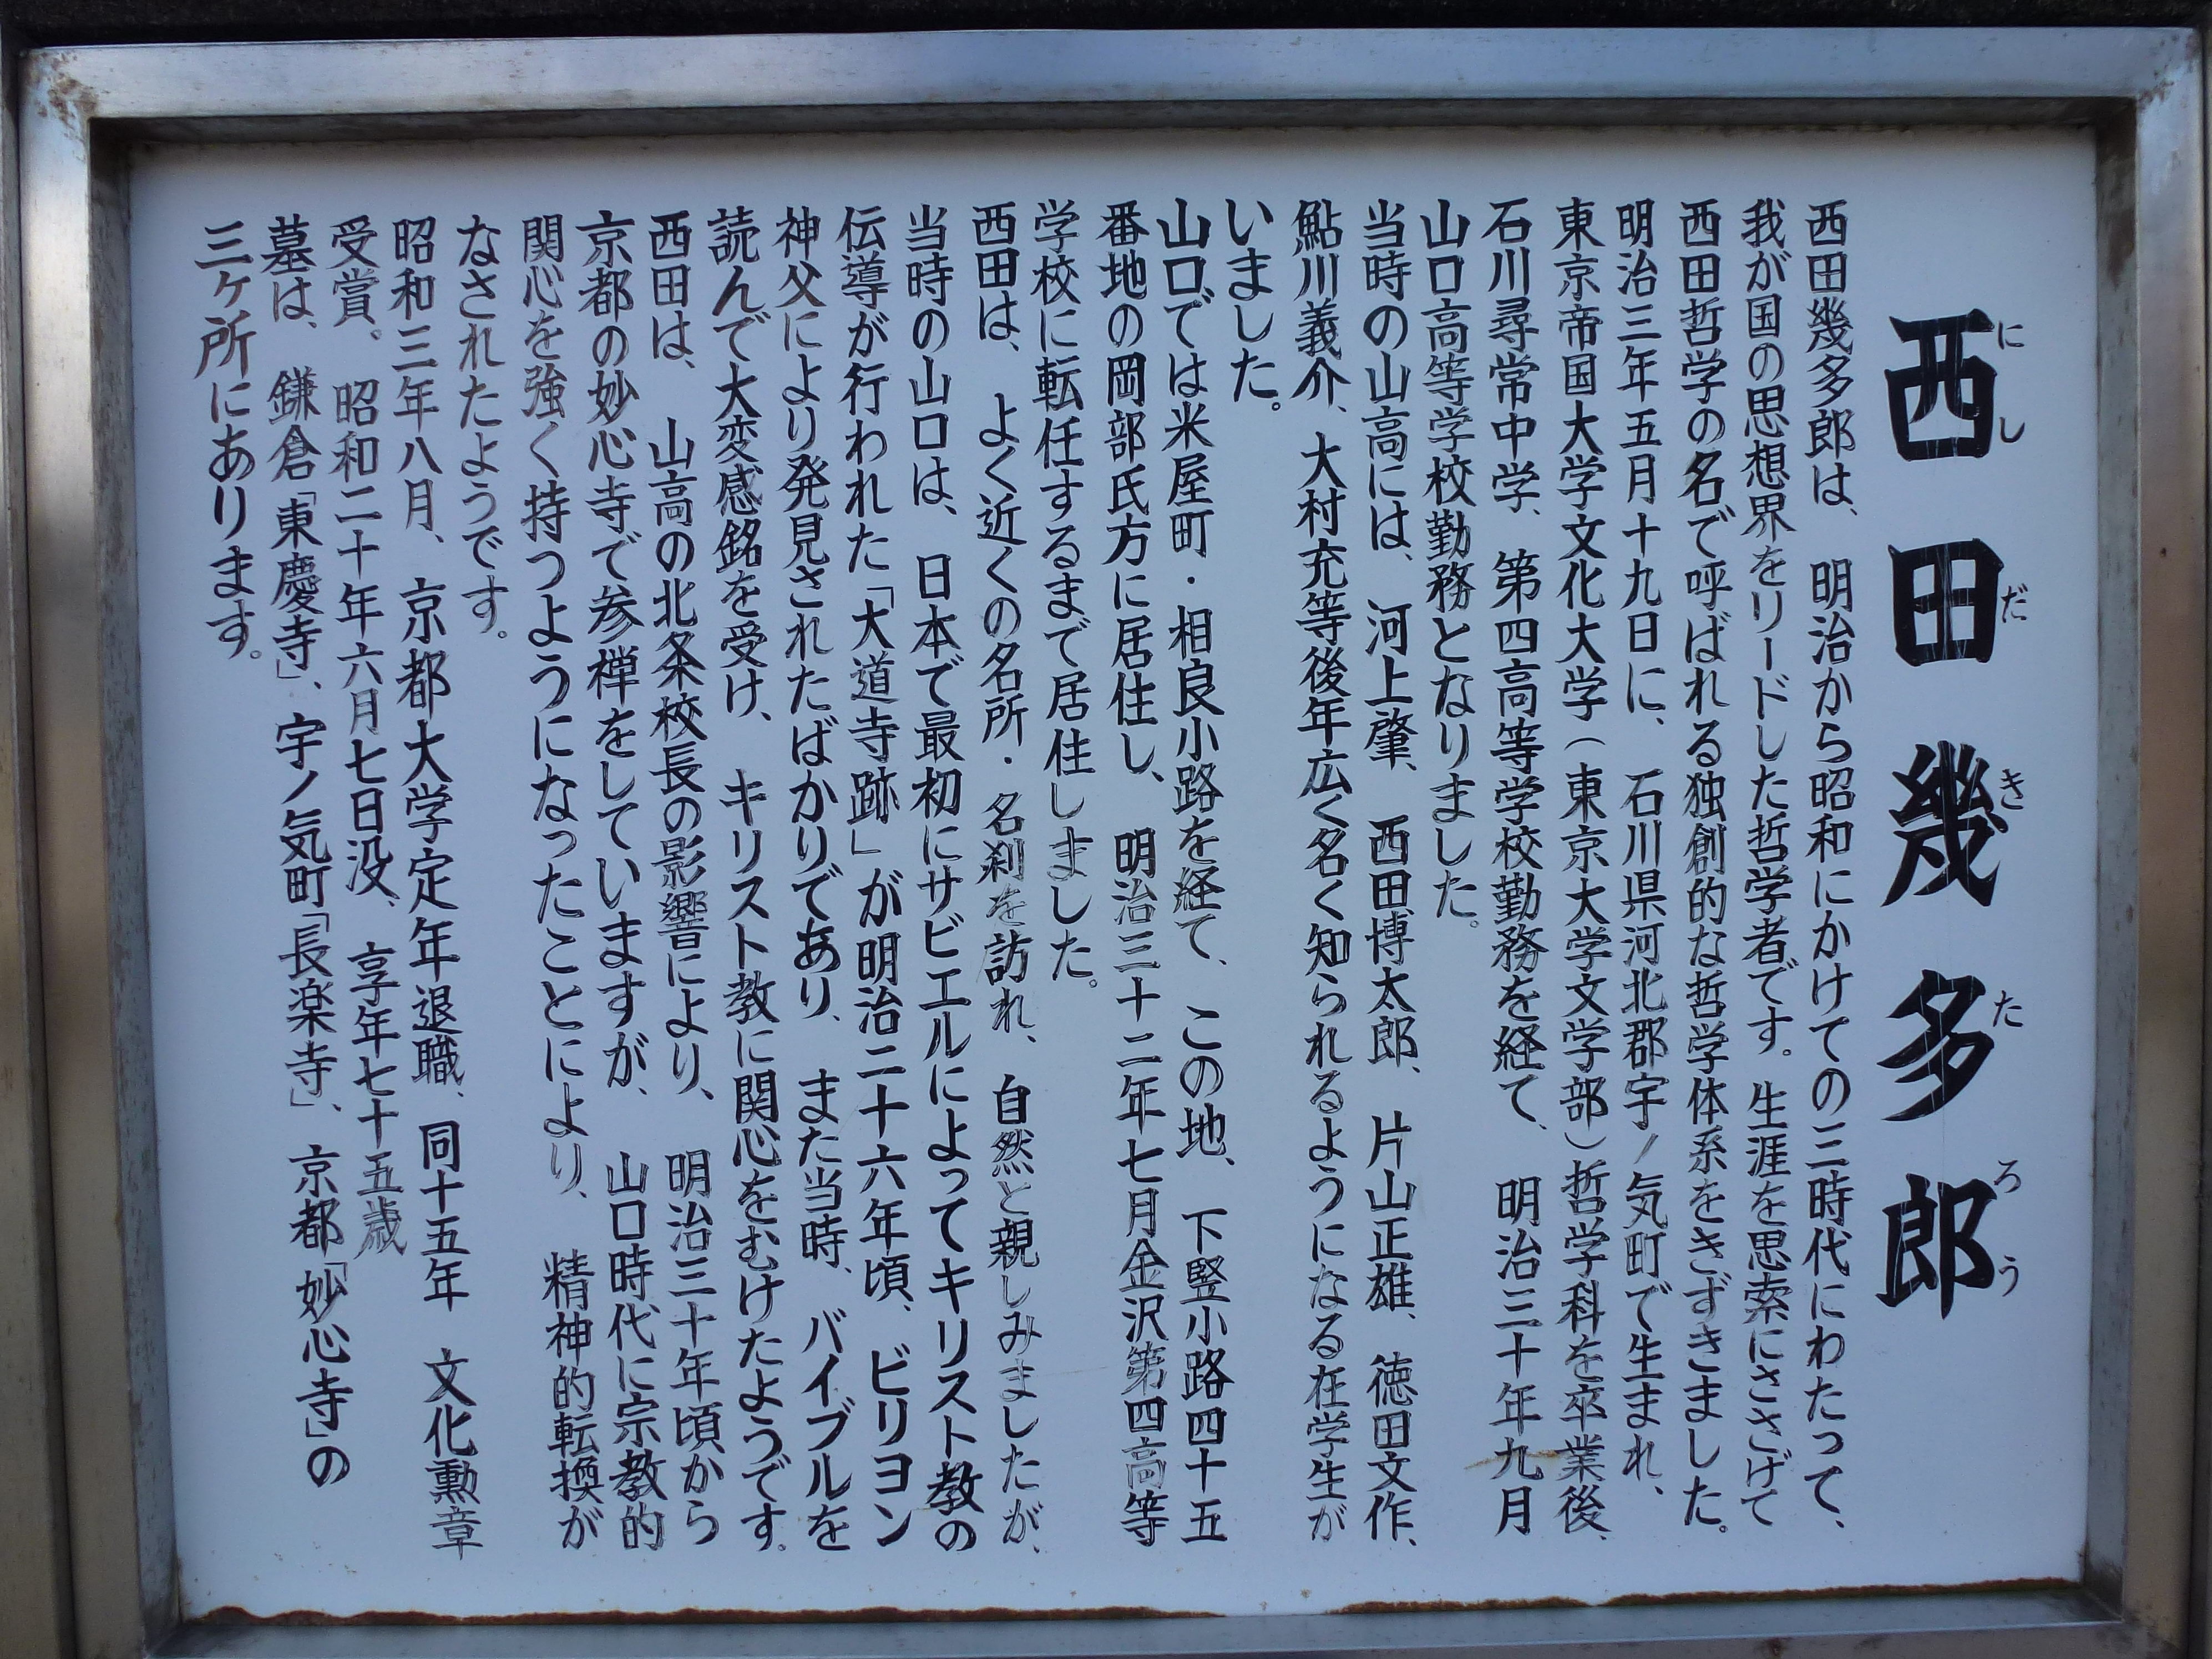 西田幾多郎
にしだきたろう
西田幾多郎は、明治から昭和にかけての三時代にわたって、
我が国の思想界をリードした哲学者です。生涯を思索にささげて
西田哲学の名で呼ばれる独創的な哲学体系をきずきました。
明治三年五月十九日に、石川県河北郡宇ノ気町で生まれ、
東京帝国大学文化大学（東京大学文学部）哲学科を卒業後、
石川尋常中学、第四高等学校勤務を経て、明治三十年九月
山口高等学校勤務となりました。
当時の山高には、河上肇、西田博太郎、片山正雄、徳田文作、
鮎川義介、大村充等後年広く名く知られるようになる在学生が
いました。
山口では米屋町・相良小路を経て、この地、下竪小路四十五
番地の岡部氏方に居住し、明治三十二年七月金沢第四高等
学校に転任するまで居住しました。
西田は、よく近くの名所・名刹を訪れ、自然と親しみましたが、
当時の山口は、日本で最初にサビエルによってキリスト教の
伝導が行われた「大道寺跡」が明治二十六年頃、ビリヨン
神父により発見されたばかりであり、また当時、バイブルを
読んで大変感銘を受け、キリスト教に関心をむけたようです。
西田は、山高の北条校長の影響により、明治三十年頃から
京都の妙心寺で参禅をしていますが、山口時代に宗教的
関心を強く持つようになったことにより、精神的転換が
なされたようです。
昭和三年八月、京都大学定年退職、同十五年　文化勲章
受賞。昭和二十年六月七日没、享年七十五歳
墓は、鎌倉「東慶寺」、宇ノ気町「長楽寺」、京都「妙心寺」の
三ヶ所にあります。